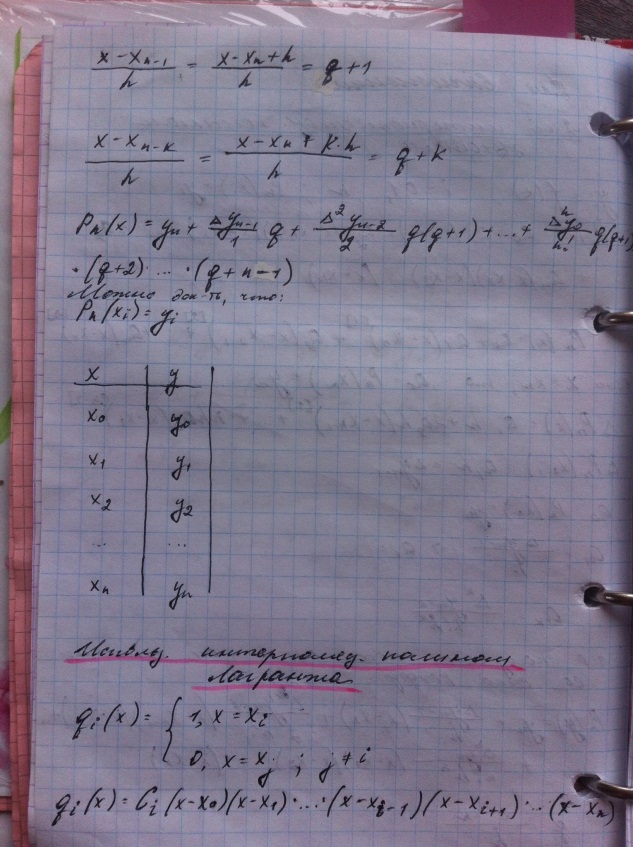 (x - x_{n-1})/h = (x - x_n + h)/h = q + 1
(x - x_{n-k})/h = (x - x_n + k·h)/h = q + k
P_n(x) = y_n + Δy_{n-1}/1 q + Δ²y_{n-2}/2 q(q+1) + ... + Δⁿy_0/n! q(q+1)
·(q+2)· ... ·(q+n-1)
Можно док-ть, что:
P_n(x_i) = y_i
x | y
x_0 | y_0
x_1 | y_1
x_2 | y_2
... | ...
x_n | y_n
интерполяц. полином
Лагранжа
q_i(x) = { 1, x = x_i
0, x = x_j ; j ≠ i
q_i(x) = C_i (x-x_0)(x-x_1)·...·(x-x_{i-1})(x-x_{i+1})·...(x-x_n)